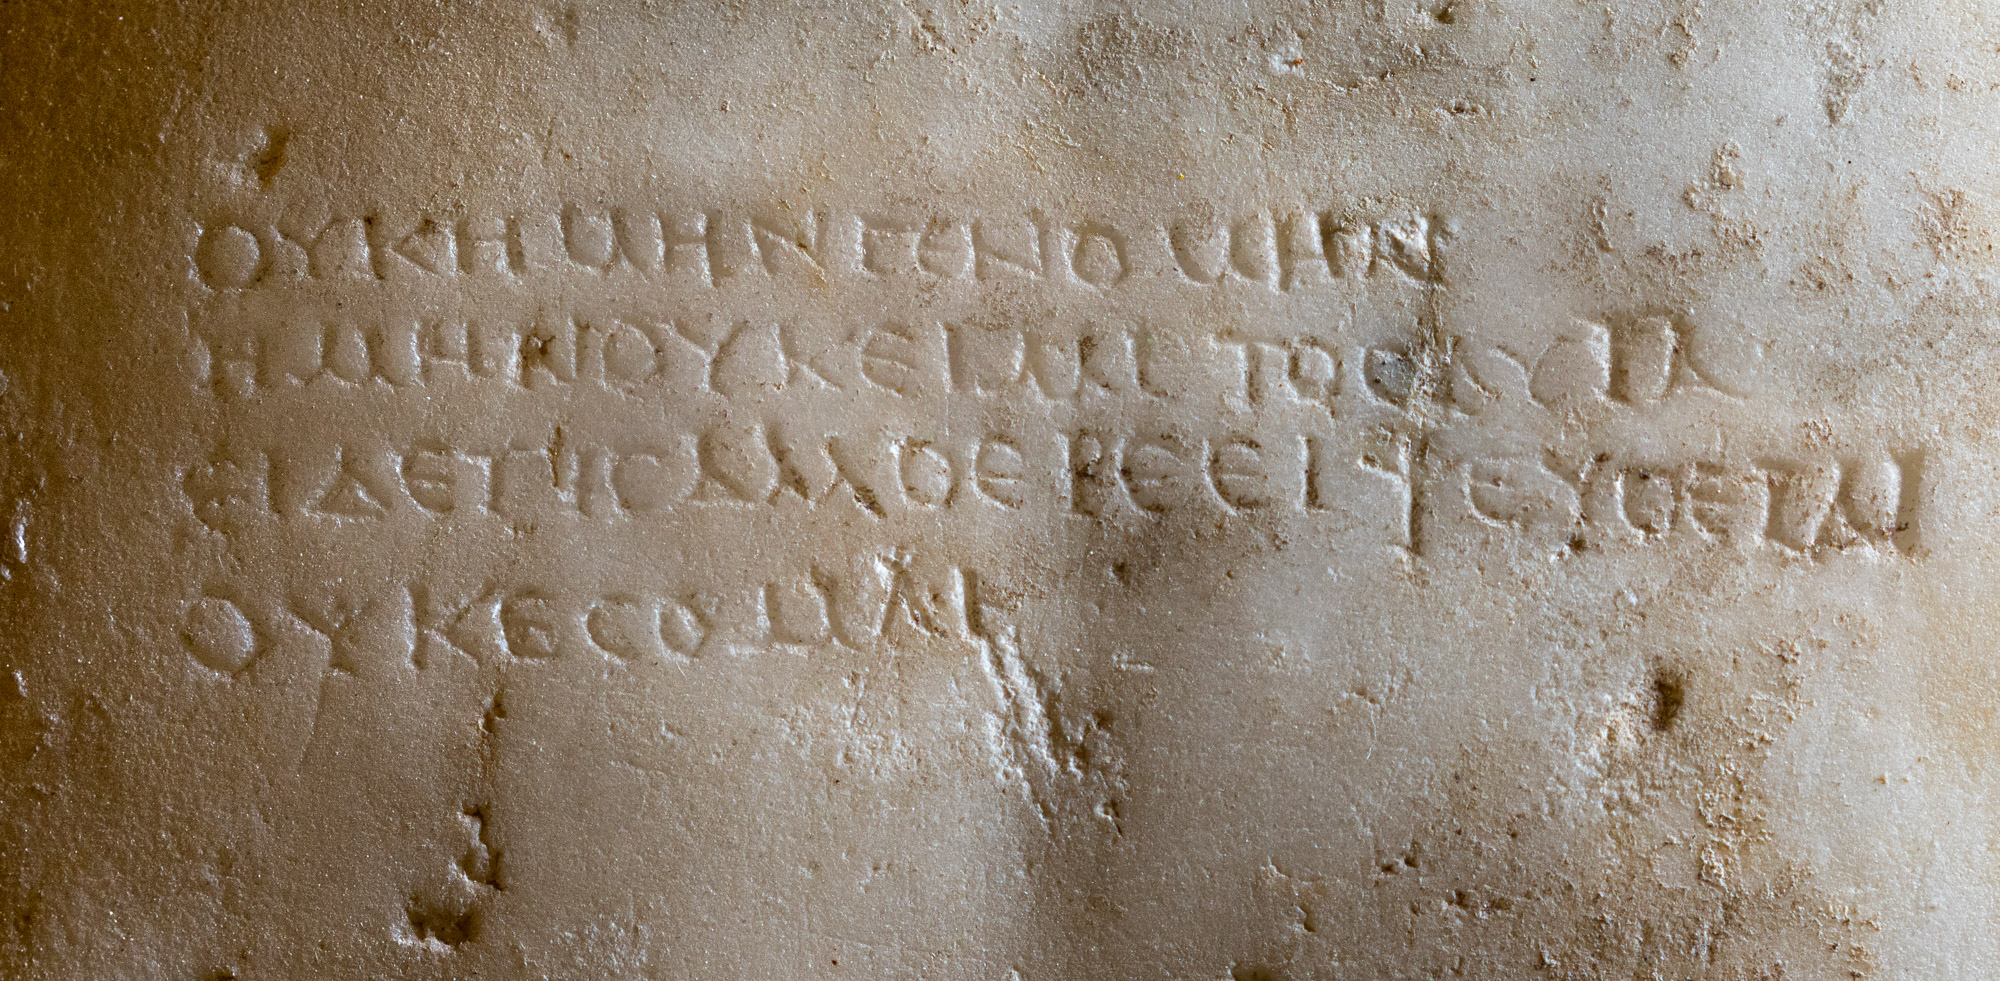 ΟΥΚΗΜΗΝΓΕΝΟΜΗΝ
ΗΜΗΝΟΥΚΕΙΜΙΤΟϹΑΥΤΑ
ΕΙΔΕΤΙϹΑΛΛΟΕΡΕΕΙΨΕΥϹΕΤΑΙ
ΟΥΚΕϹΟΜΑΙ